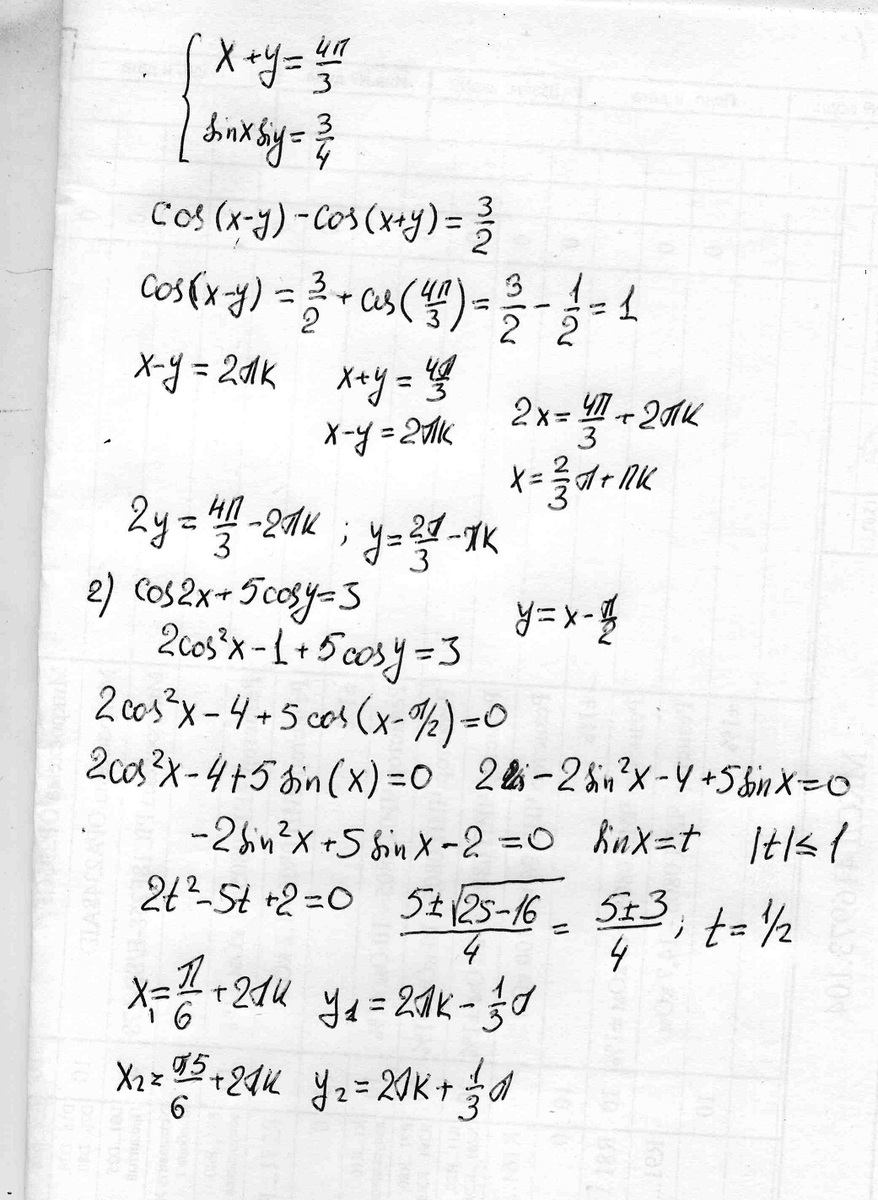 x+y=4π/3
sinx siy=3/4
cos(x-y)-cos(x+y)=3/2
cos(x-y)=3/2+cos(4π/3)=3/2-1/2=1
x-y=2πk x+y=4π/3
x-y=2πk 2x=4π/3+2πk
x=2/3π+πk
2y=4π/3-2πk; y=2π/3-πk
2) cos2x+5cosy=3 y=x-π/2
2cos²x-1+5cosy=3
2cos²x-4+5cos(x-π/2)=0
2cos²x-4+5sin(x)=0 2-2sin²x-4+5sinx=0
-2sin²x+5sinx-2=0 sinx=t |t|≤1
2t²-5t+2=0 (5±√(25-16))/4=(5±3)/4; t=1/2
x₁=π/6+2πk y₁=2πk-1/3π
x₂=π5/6+2πk y₂=2πk+1/3π